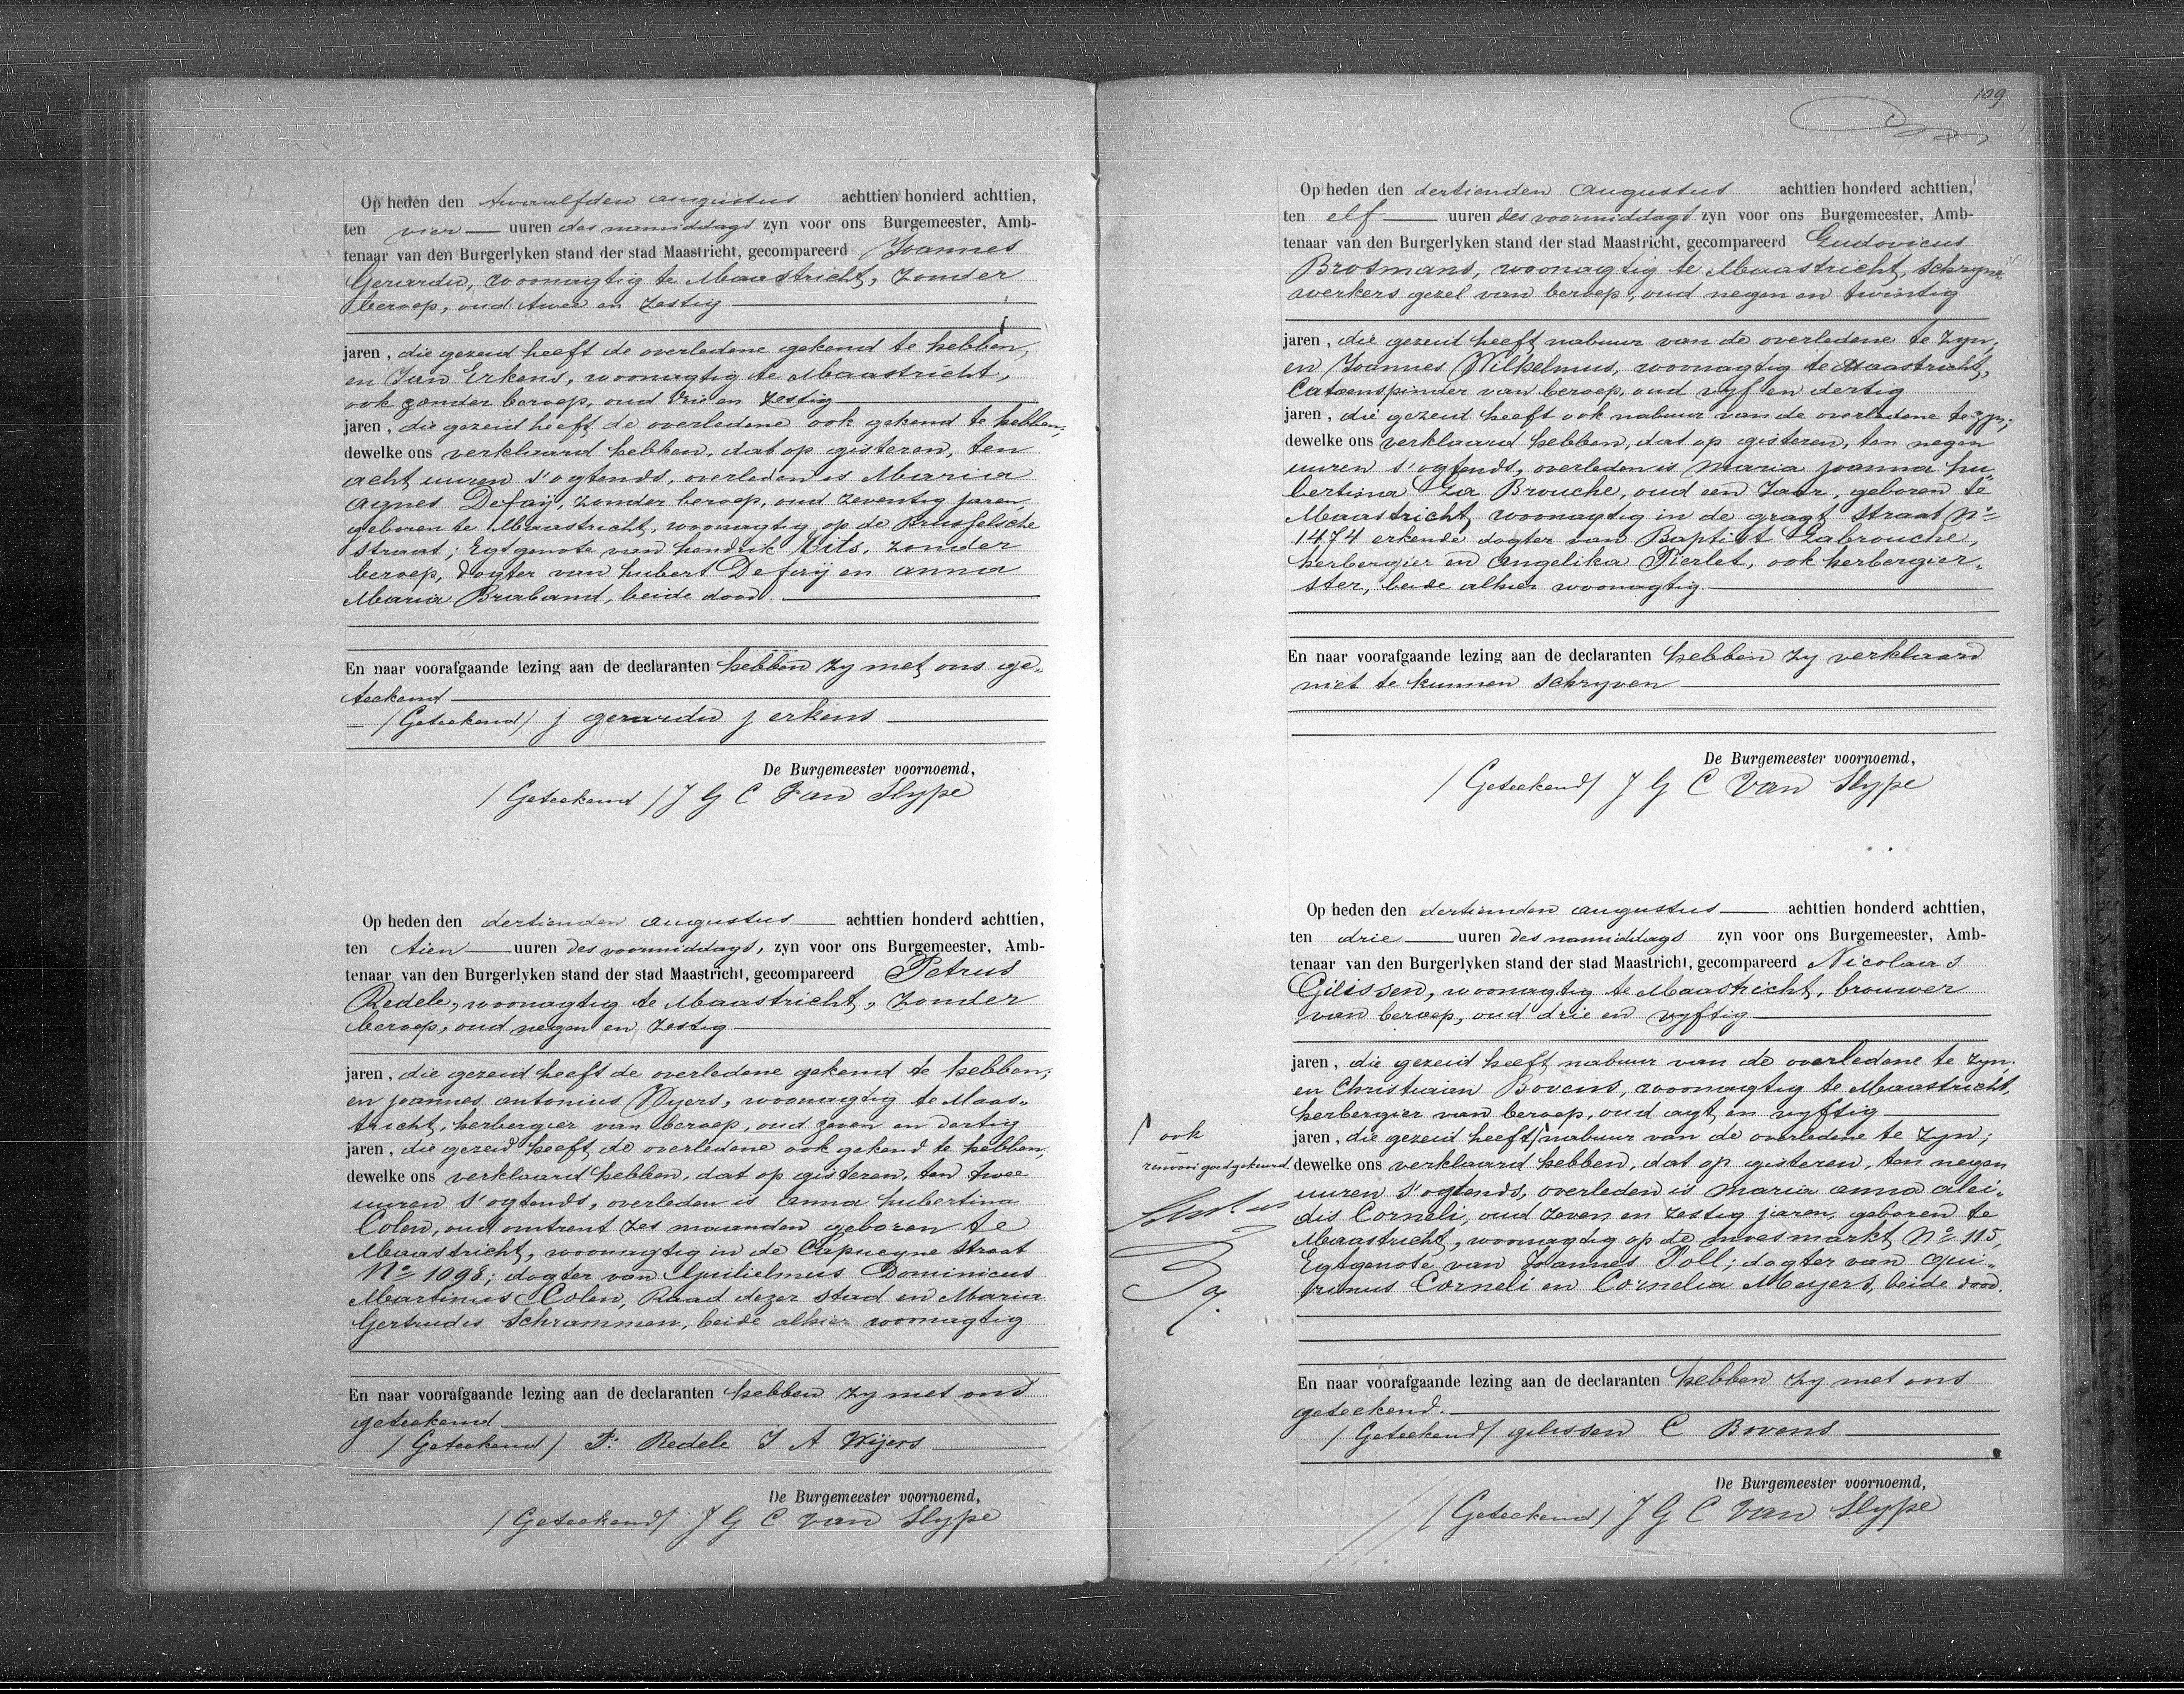 Op heden den twaalfden augustus achttien honderd achttien,
ten vier uuren des namiddags zyn voor ons Burgemeester, Amb-
tenaar van den Burgerlyken stand der stad Maastricht, gecompareerd Joannes
Gerardu, woonagtig te Maastricht, zonder
beroep, oud twee en zestig
jaren, die gezeid heeft de overledene gekend te hebben,
en Jan Erkens, woonagtig te Maastricht,
ook zonder beroep, oud drie en zestig
jaren, die gezeid heeft de overledene ook gekend te hebben,
dewelke ons verklaard hebben, dat op gisteren, ten
acht uuren s'ogtends, overleden is Maria
Agnes Defaÿ, zonder beroep, oud zeventig jaren,
geboren te Maastricht, woonagtig op de Brusselsche
straat; Egtgenote van hendrik Nits, zonder
beroep, dogter van hubert Defaÿ en anna
Maria Braband, beide dood.
En naar voorafgaande lezing aan de declaranten hebben zy met ons ge-
teekend
(Geteekend) j gerardu j erkens
De Burgemeester voornoemd,
(Geteekend) J G C Van Slype
Op heden den dertienden augustus achttien honderd achttien,
ten tien uuren des voormiddags, zyn voor ons Burgemeester, Amb-
tenaar van den Burgerlyken stand der stad Maastricht, gecompareerd Petrus
Redele, woonagtig te Maastricht, zonder
beroep, oud negen en zestig
jaren, die gezeid heeft de overledene gekend te hebben;
en joannes antonius Wyers, woonagtig te Maas-
tricht, herbergier van beroep, oud zeven en dertig
jaren, die gezeid heeft de overledene ook gekend te hebben,
dewelke ons verklaard hebben, dat op gisteren, ten twee
uuren s'ogtends, overleden is anna hubertina
Colen, oud omtrent zes maanden geboren te
Maastricht, woonagtig in de Capucyne straat
No 1098; dogter van Guilielmus Dominicus
Martinus Colen, Raad dezer stad en Maria
Gertrudis Schrammen, beide alhier woonagtig
En naar voorafgaande lezing aan de declaranten hebben zy met ons
geteekend
(Geteekend) P: Redele J A Wÿers
De Burgemeester voornoemd,
(Geteekend) J G C Van Slype
109
Op heden den dertienden augustus achttien honderd achttien,
ten elf uuren des voormiddags zyn voor ons Burgemeester, Amb-
tenaar van den Burgerlyken stand der stad Maastricht, gecompareerd Ludovicus
Brosmans, woonagtig te Maastricht, schryn-
werkers gezel van beroep, oud negen en twintig
jaren, die gezeid heeft nabuur van de overledene te zyn;
en Joannes Wilhelmus, woonagtig te Maastricht,
Catoenspinder van beroep, oud vyf en dertig
jaren, die gezeid heeft ook nabuur van de overledene te zyn;
dewelke ons verklaard hebben, dat op gisteren, ten negen
uuren s'ogtends, overleden is maria joanna hu-
bertina La Brouche, oud een Jaar, geboren te
Maastricht woonagtig in de gragt straat No
1474 erkende dogter van Baptist Labrouche,
herbergier en Angelika Pierlet, ook herbergier-
ster, beide alhier woonagtig.
En naar voorafgaande lezing aan de declaranten hebben zy verklaard
niet te kunnen schryven
De Burgemeester voornoemd,
(Geteekend) J G C Van Slype
Op heden den dertienden augustus achttien honderd achttien,
ten drie uuren des namiddags zyn voor ons Burgemeester, Amb-
tenaar van den Burgerlyken stand der stad Maastricht, gecompareerd Nicolaas
Gilissen, woonagtig te Maastricht, brouwer
van beroep, oud drie en vyftig
jaren, die gezeid heeft nabuur van de overledene te zyn;
en Christiaan Bovens, woonagtig te Maastricht,
herbergier van beroep, oud agt en vyftig
jaren, die gezeid heeft nabuur van de overledene te zyn;
ook
renvooi goedgekeurd
dewelke ons verklaard hebben, dat op gisteren, ten negen
uuren s'ogtends, overleden is maria anna alei-
dis Corneli, oud zeven en zestig jaren, geboren te
Maastricht, woonagtig op de moesmarkt No 115,
Egtgenote van Joannes Poll; dogter van qui-
rinus Corneli en Cornelia Meyers, beide dood.
En naar voorafgaande lezing aan de declaranten hebben zy met ons
geteekend.
(Geteekend) gilissen C Bovens
De Burgemeester voornoemd,
(Geteekend) J G C Van Slype